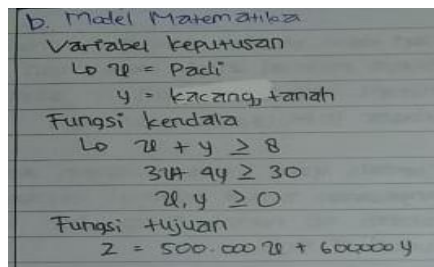 b. Model Matematika
Variabel keputusan
↳ x = Padi
y = kacang tanah
Fungsi kendala
↳ x + y ≥ 8
3x + 4y ≥ 30
x, y ≥ 0
Fungsi tujuan
Z = 500.000 x + 600.000 y